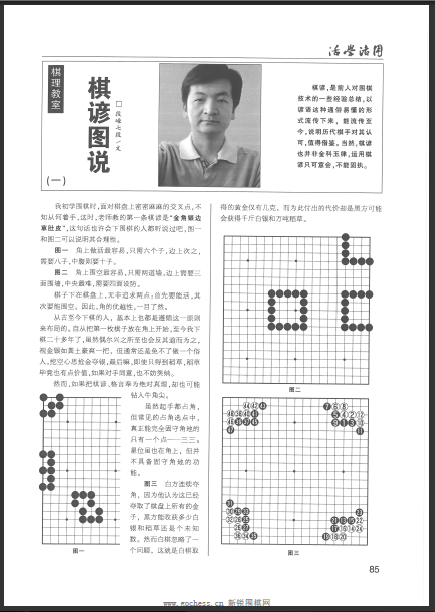 活学活用
棋理教室
棋谚图说
(一)
□ 段峰七段/文
棋谚,是前人对围棋
技术的一些经验总结,以
谚语这种通俗易懂的形
式流传下来。能流传至
今,说明历代棋手对其认
可,值得借鉴。当然,棋谚
也并非金科玉律,运用棋
谚只可意会,不能固执。
我初学围棋时,面对棋盘上密密麻麻的交叉点,不
知从何着手,这时,老师教的第一条棋谚是“金角银边
草肚皮”,这句话也许会下围棋的人都听说过吧,图一
和图二可以说明其合理性。
图一 角上做活最容易,只需六个子,边上次之,
需要八子,中腹则要十子。
图二 角上围空最容易,只需两道墙,边上需要三
面围墙,中央最难,需要四面设防。
棋子下在棋盘上,无非追求两点:首先要能活,其
次要能围空。因此,角的优越性,一目了然。
从古至今下棋的人,基本上也都是遵循这一原则
来布局的。自从把第一枚棋子放在角上开始,至今我下
棋二十多年了,虽然偶尔兴之所至也会反其道而为之,
视金银如粪土豪爽一把,但通常还是免不了做一个俗
人,挖空心思抢金夺银,最后嘛,即使只得到稻草,稻草
毕竟也有点价值,如果对手同意,也不妨笑纳。
然而,如果把棋谚、格言奉为绝对真理,却也可能
钻入牛角尖。
虽然起手都占角,
但常见的占角选点中,
真正能完全固守角地的
只有一个点——三三。
星位虽也在角上,但并
不具备固守角地的功
能。
图三 白方连续夺
角,因为他认为这已经
夺取了棋盘上所有的金
子,黑方能收获多少白
银和稻草还是个未知
数。然而白棋忽略了一
个问题,这就是白棋取
图一
得的黄金仅有几克。而为此付出的代价却是黑方可能
会获得千斤白银和万吨稻草。
图二
图三
85
www.gochess.cn 新锐围棋网